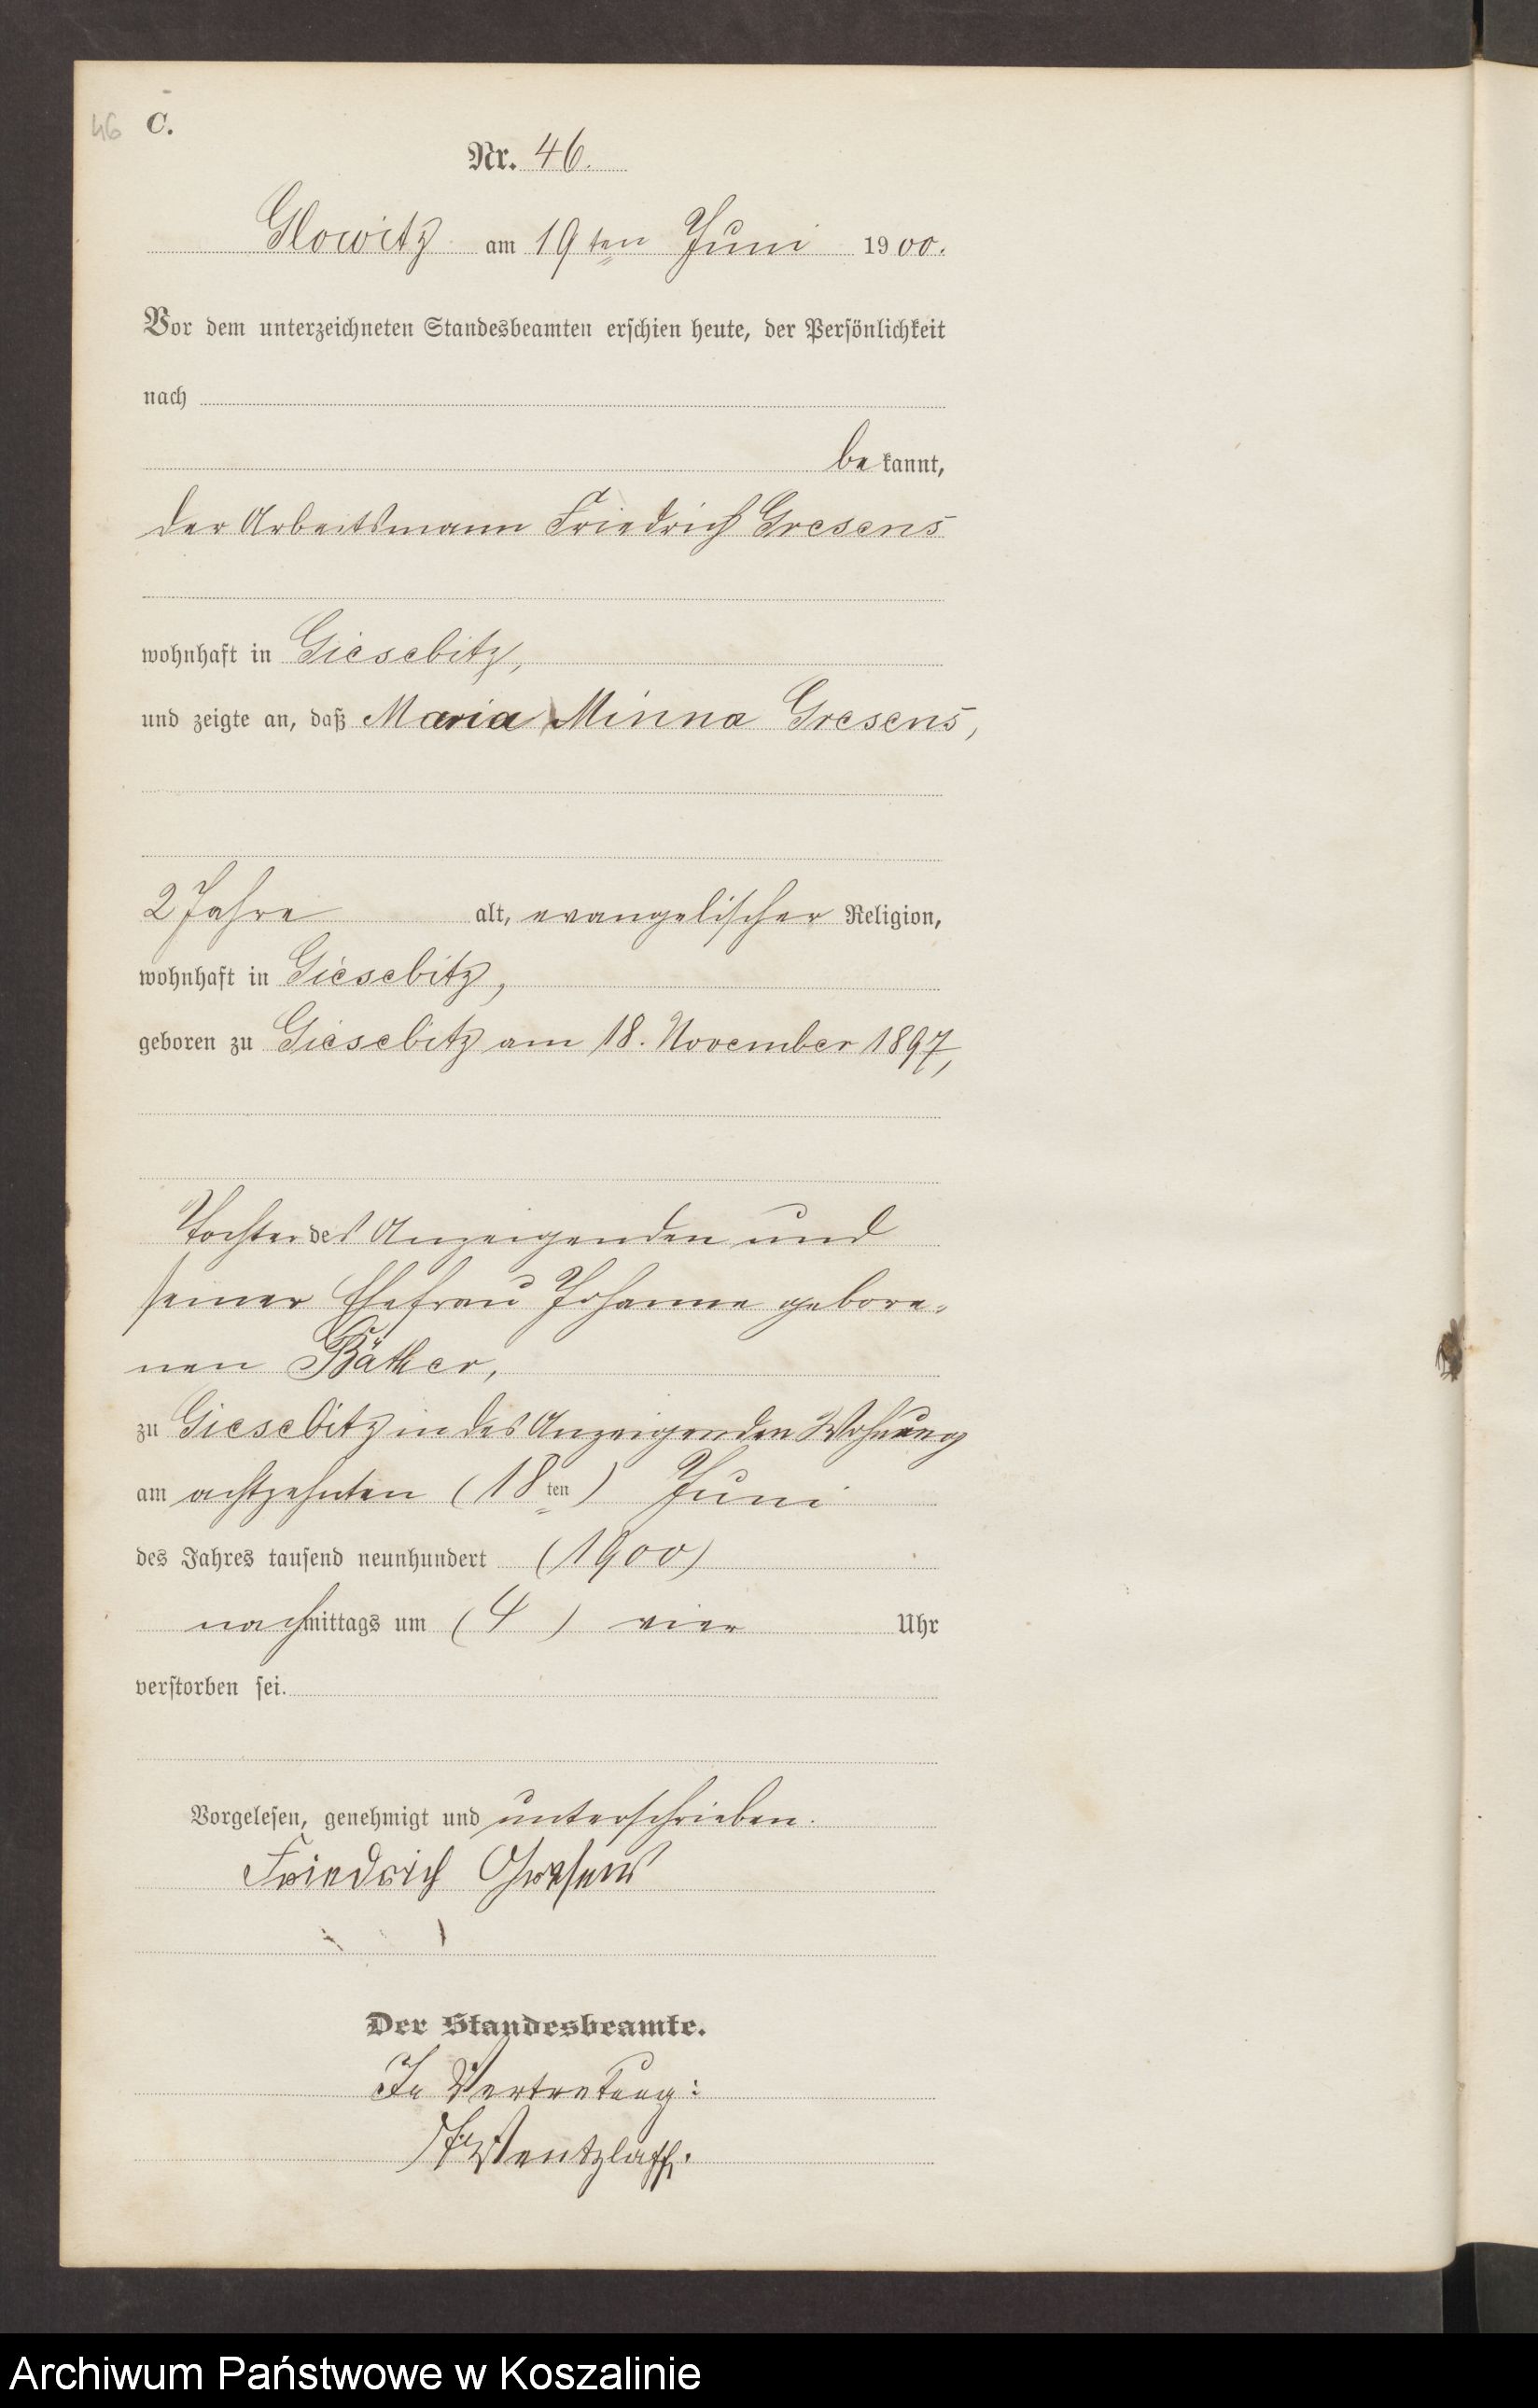 46 C.
Nr. 46.
Glowitz am 19ten Juni 1900.
Vor dem unterzeichneten Standesbeamten erschien heute, der Persönlichkeit
nach
bekannt,
der Arbeitsmann Friedrich Gresens
wohnhaft in Giesebitz,
und zeigte an, daß Maria Minna Gresens,
2 Jahre alt, evangelischer Religion,
wohnhaft in Giesebitz,
geboren zu Giesebitz am 18. November 1897,
Tochter des Anzeigenden und
seiner Ehefrau Johanne gebore-
nen Bäther,
zu Giesebitz in des Anzeigenden Wohnung
am achtzehnten (18ten) Juni
des Jahres tausend neunhundert (1900)
nachmittags um (4) vier Uhr
verstorben sei.
Vorgelesen, genehmigt und unterschrieben.
Friedrich Gresens
Der Standesbeamte.
In Vertretung:
Wentzlaff.
Archiwum Państwowe w Koszalinie